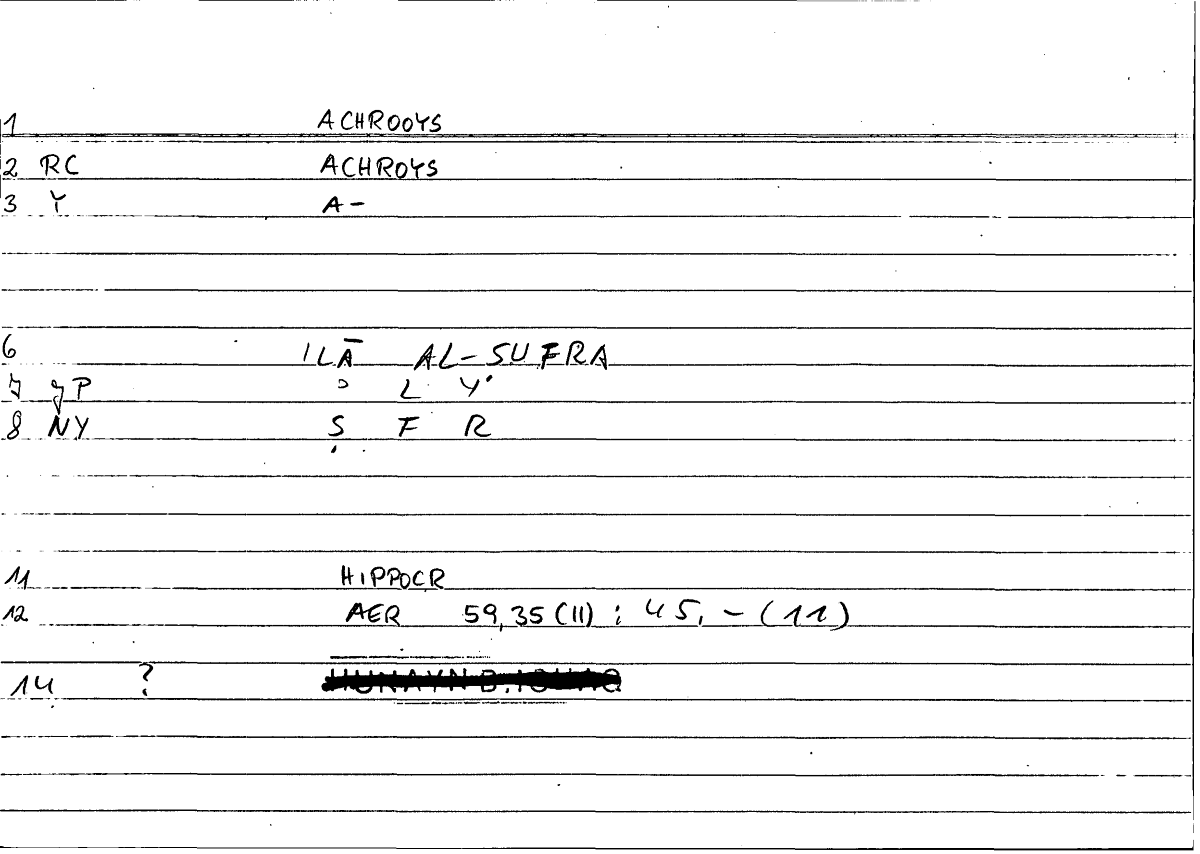 1 ACHROOYS
2 RC ACHROYS
3 Y A-
6 ILĀ AL-SUFRA
7 gP ʾ L Y
8 NY Ṣ F R
11 HIPPOCR
12 AER 59,35 (II) : 45, - (11)
14 ? HUNAYN B. ISHAQ